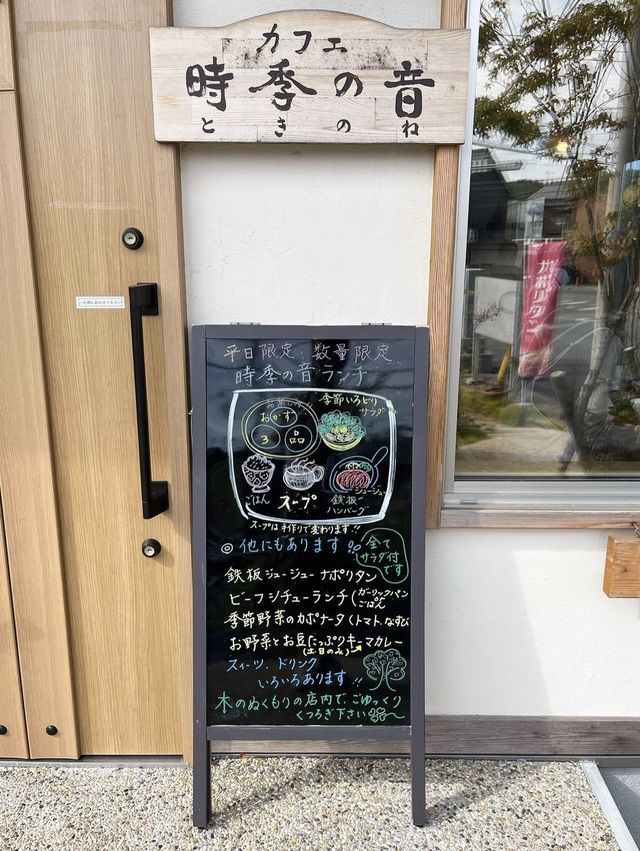 カフェ
時季の音
ときのね
ナポリタン
平日限定 数量限定
時季の音ランチ
季節いろどり
サラダ
おかず
3品
ごはん
スープ
鉄板
ジュージュー
ハンバーグ
スープは手作りで変わります!!
◎他にもあります!!
全て
サラダ付
です
鉄板ジュージューナポリタン
ビーフシチューランチ(ガーリックパン
ごはん
季節野菜のカポナータ(トマト、なすび
お野菜とお豆たっぷりキーマカレー
(土・日のみ)
スィーツ、ドリンク
いろいろあります!!
木のぬくもりの店内で、ごゆっくり
くつろぎ下さい